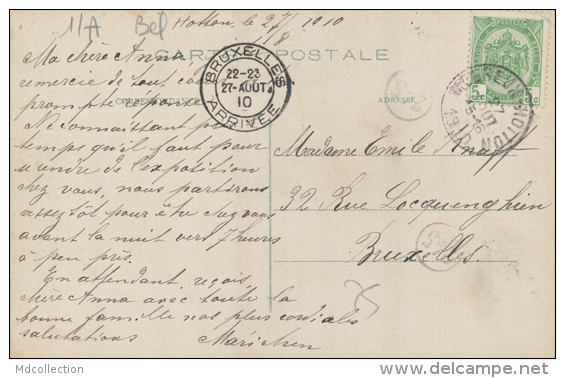 11/A Bel
Hotton, le 27/8 1910
CARTE POSTALE
CORRESPONDANCE
ADRESSE
BRUXELLES
22-23
27-AOUT
10
ARRIVÉE
MELREUX-HOTTON
AOUT
15-16
1910
5c
Ma chère Anna
remercie de tout
prompte
Ne connaissant pas
temps qu'il faut pour
vendre de l'exposition
chez vous, nous partirons
assez tôt pour être chez vous
avant la nuit vers 7 heures
à peu près.
En attendant, reçois,
chère Anna avec toute la
bonne famille nos plus cordiales
salutations
Mariechen
Madame Emile Knaff
32 Rue Locquenghien
Bruxelles.
Mdcollection
www.delcampe.net